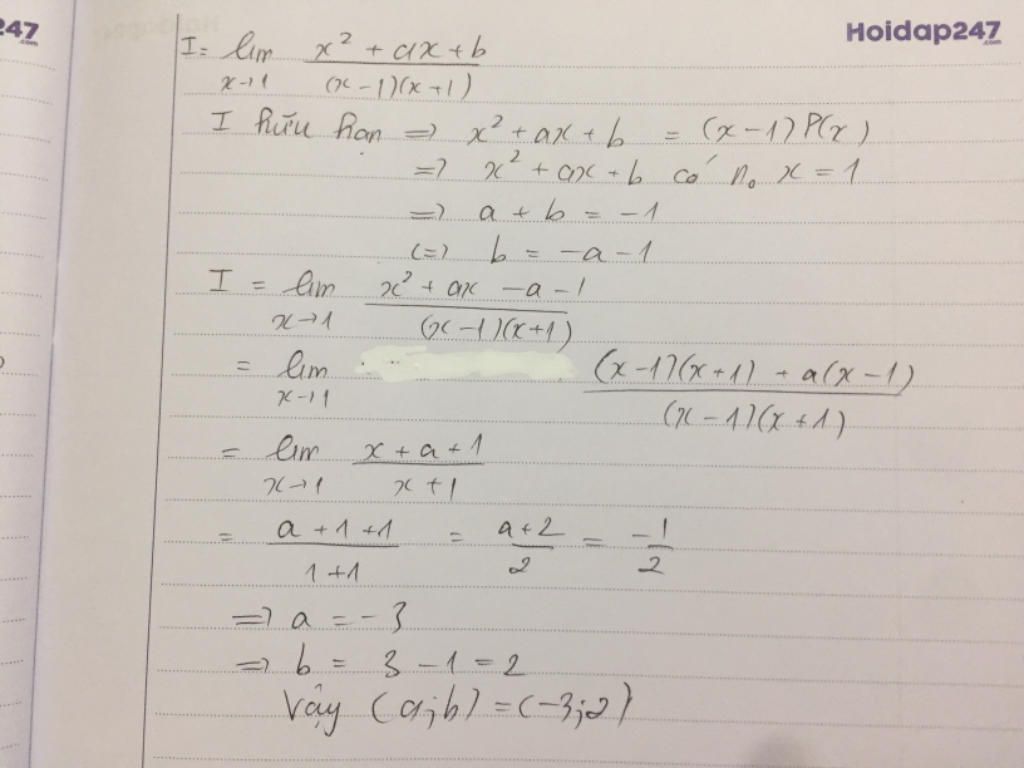 247
.com
Hoidap247
.com
I = lim x² + ax + b / (x - 1)(x + 1)
x→1
I hữu hạn => x² + ax + b = (x - 1) P(x)
=> x² + ax + b có n₀ x = 1
=> a + b = -1
(=) b = -a - 1
I = lim x² + ax - a - 1 / (x - 1)(x + 1)
x→1
= lim (x - 1)(x + 1) + a(x - 1) / (x - 1)(x + 1)
x→1
= lim x + a + 1 / x + 1
x→1
= a + 1 + 1 / 1 + 1 = a + 2 / 2 = -1 / 2
=> a = -3
=> b = 3 - 1 = 2
Vậy (a;b) = (-3;2)